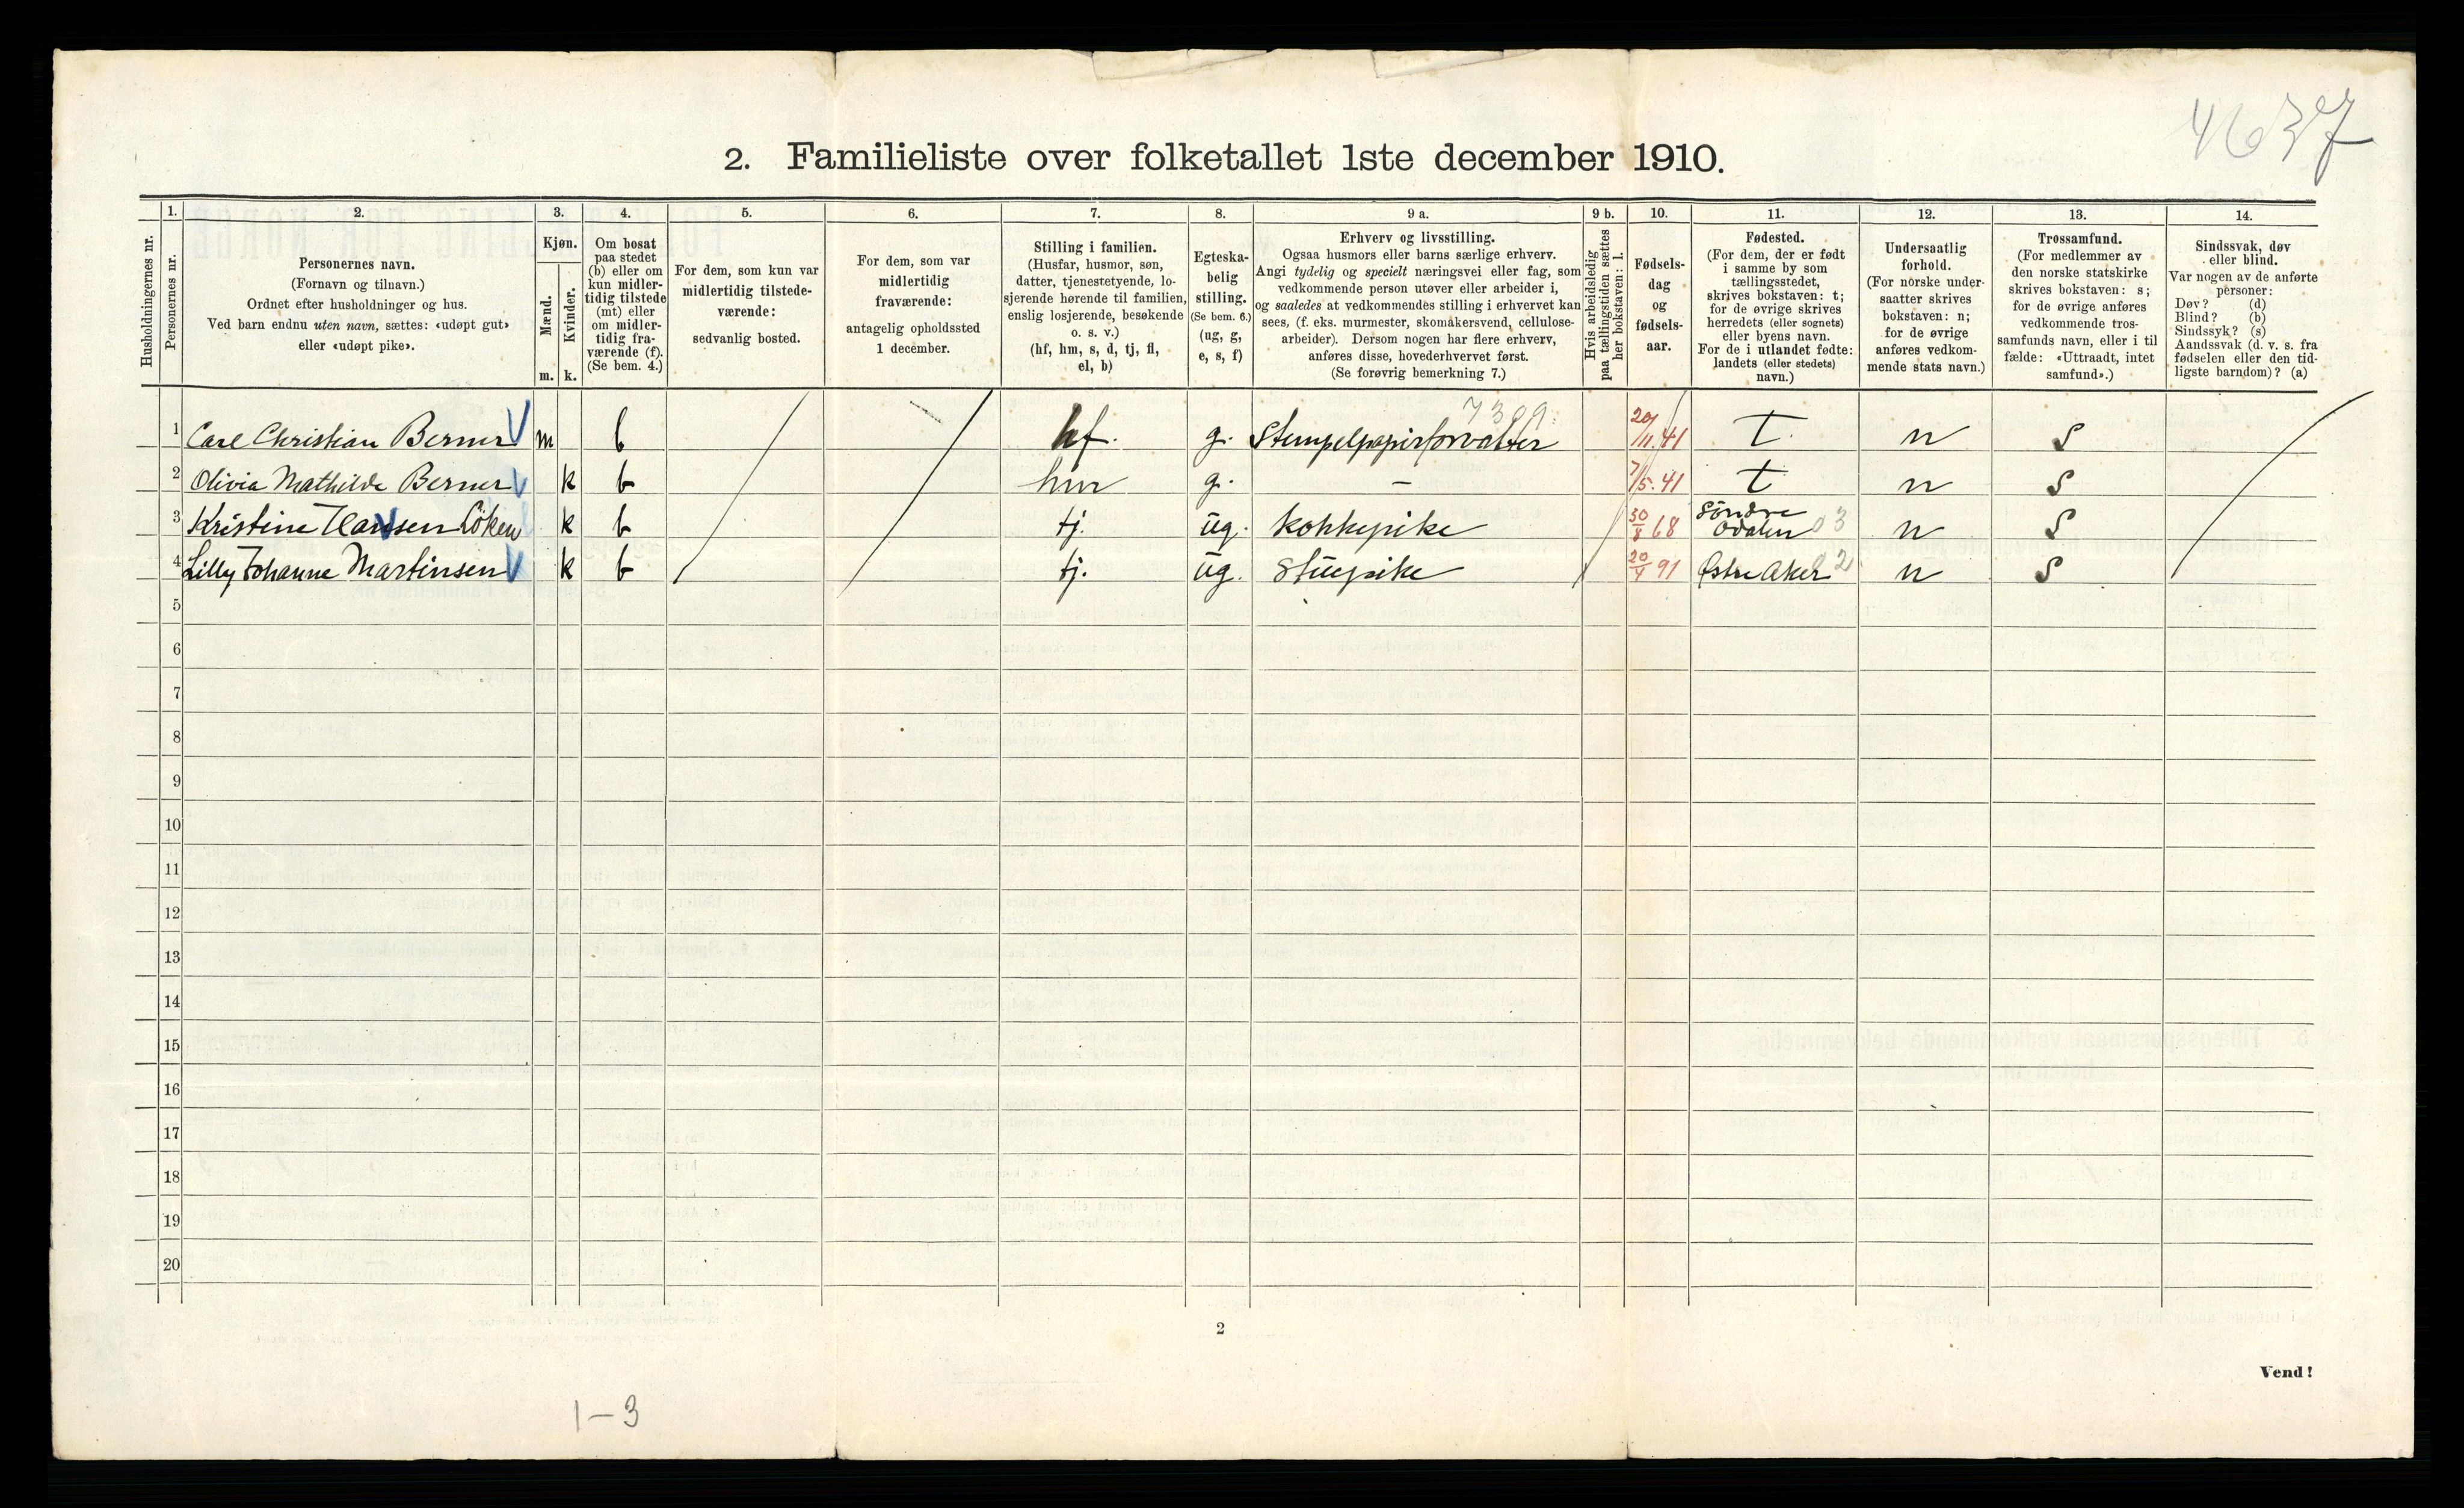 4637
2. Familieliste over folketallet 1ste december 1910.
Husholdningernes nr.
1.
Personernes nr.
2.
Personernes navn.
(Fornavn og tilnavn.)
Ordnet efter husholdninger og hus.
Ved barn endnu uten navn, sættes: «udøpt gut»
eller «udøpt pike».
3.
Kjøn.
Mænd.
Kvinder.
m. k.
4.
Om bosat
paa stedet
(b) eller om
kun midler-
tidig tilstede
(mt) eller
om midler-
tidig fra-
værende (f).
(Se bem. 4.)
5.
For dem, som kun var
midlertidig tilstede-
værende:
sedvanlig bosted.
6.
For dem, som var
midlertidig
fraværende:
antagelig opholdssted
1 december.
7.
Stilling i familien.
(Husfar, husmor, søn,
datter, tjenestetyende, lo-
sjerende hørende til familien,
enslig losjerende, besøkende
o. s. v.)
(hf, hm, s, d, tj, fl,
el, b)
8.
Egteska-
belig
stilling.
(Se bem. 6.)
(ug, g,
e, s, f)
9 a.
Erhverv og livsstilling.
Ogsaa husmors eller barns særlige erhverv.
Angi tydelig og specielt næringsvei eller fag, som
vedkommende person utøver eller arbeider i,
og saaledes at vedkommendes stilling i erhvervet kan
sees, (f. eks. murmester, skomakersvend, cellulose-
arbeider). Dersom nogen har flere erhverv,
anføres disse, hovederhvervet først.
(Se forøvrig bemerkning 7.)
9 b.
Hvis arbeidsledig
paa tællingstiden sættes
her bokstaven: l.
10.
Fødsels-
dag
og
fødsels-
aar.
11.
Fødested.
(For dem, der er født
i samme by som
tællingsstedet,
skrives bokstaven: t;
for de øvrige skrives
herredets (eller sognets)
eller byens navn.
For de i utlandet fødte:
landets (eller stedets)
navn.)
12.
Undersaatlig
forhold.
(For norske under-
saatter skrives
bokstaven: n;
for de øvrige
anføres vedkom-
mende stats navn.)
13.
Trossamfund.
(For medlemmer av
den norske statskirke
skrives bokstaven: s;
for de øvrige anføres
vedkommende tros-
samfunds navn, eller i til
fælde: «Uttraadt, intet
samfund».)
14.
Sindssvak, døv
eller blind.
Var nogen av de anførte
personer:
Døv? (d)
Blind? (b)
Sindssyk? (s)
Aandssvak (d. v. s. fra
fødselen eller den tid-
ligste barndom)? (a)
1 Carl Christian Berner m b hf. g. Stempelpapirforvalter 20/11.41 t n s
2 Olivia Mathilde Berner k b hm g. – 7/5.41 t n s
3 Kristine Hansen Löken k b tj. ug. kokkepike 30/8 68 Söndre Odalen 03 n s
4 Lilly Johanne Martinsen k b tj. ug. Stuepike 20/4 91 Østre Aker 02 n s
5
6
7
8
9
10
11
12
13
14
15
16
17
18
19
20
2
Vend!
1–3